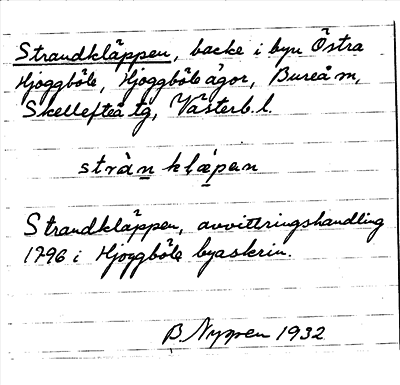 Strandkläppen, backe i byn Östra
Hjoggböle, Hjoggböle ägor, Bureå sn,
Skellefteå tg, Västerb. l.
stràn klæ̀pen
Strandkläppen, avvittringshandling
1796 i Hjoggböle byaskrin.
B. Nyppen 1932